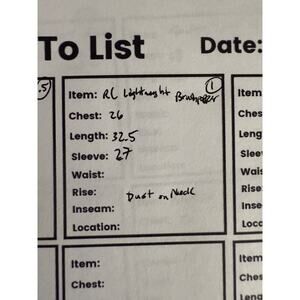 To List
Date:
.5
1
Item: RL Lightweight
Chest: 26
Length: 32.5
Sleeve: 27
Waist:
Rise:
Inseam:
Dust on Neck
Location:
Item:
Chest:
Item
Ches
Leng
Slee
Wais
Rise:
Inse
Loca
Item:
Ches